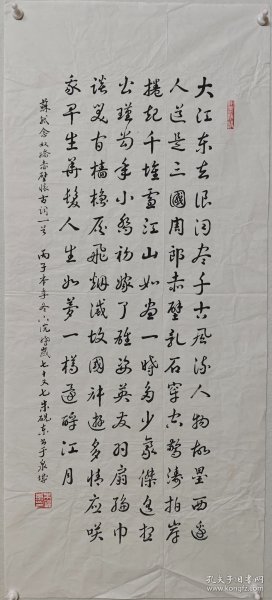 大江东去浪淘尽千古风流人物故垒西边
人道是三國周郎赤壁乱石穿空惊涛拍岸
捲起千堆雪江山如画一時多少豪傑遥想
公瑾当年小喬初嫁了雄姿英发羽扇纶巾
谈笑间檣櫓灰飛烟滅故國神遊多情应笑
我早生華髮人生如梦一樽還酹江月
蘇軾念奴嬌赤壁懷古词一首 丙子
孔夫子旧书网